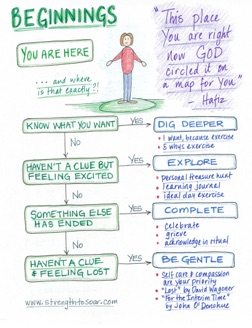 BEGINNINGS
"This place
You are right
now GOD
circled it on
a map for you"
- Hafiz
YOU ARE HERE
... and where
is that exactly?!
KNOW WHAT YOU WANT
Yes
DIG DEEPER
• I want, because exercise
• 5 whys exercise
No
HAVEN'T A CLUE BUT
FEELING EXCITED
Yes
EXPLORE
• Personal treasure hunt
• learning journal
• ideal day exercise
No
SOMETHING ELSE
HAS ENDED
Yes
COMPLETE
• Celebrate
• grieve
• acknowledge in ritual
No
HAVENT A CLUE
& FEELING LOST
Yes
BE GENTLE
• Self care & compassion
are your priority
• "Lost" by David Wagoner
• "For the Interim Time"
by John O'Donohue
www.strengthtosoar.com